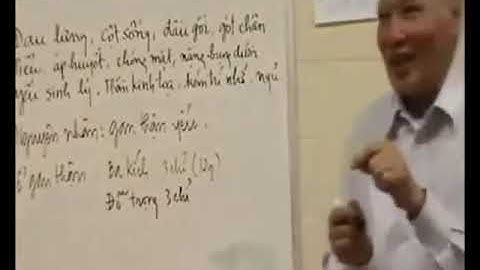 Đau lưng, cột sống, đầu gối, gót chân
tiểu, áp huyết, chóng mặt, nặng bụng dưới
yếu sinh lý, Thần kinh toạ, kém trí nhớ, ngủ
Nguyên nhân: gan thận yếu.
Bổ gan thận Ba kích 3 chỉ (12g)
Đỗ trọng 3 chỉ